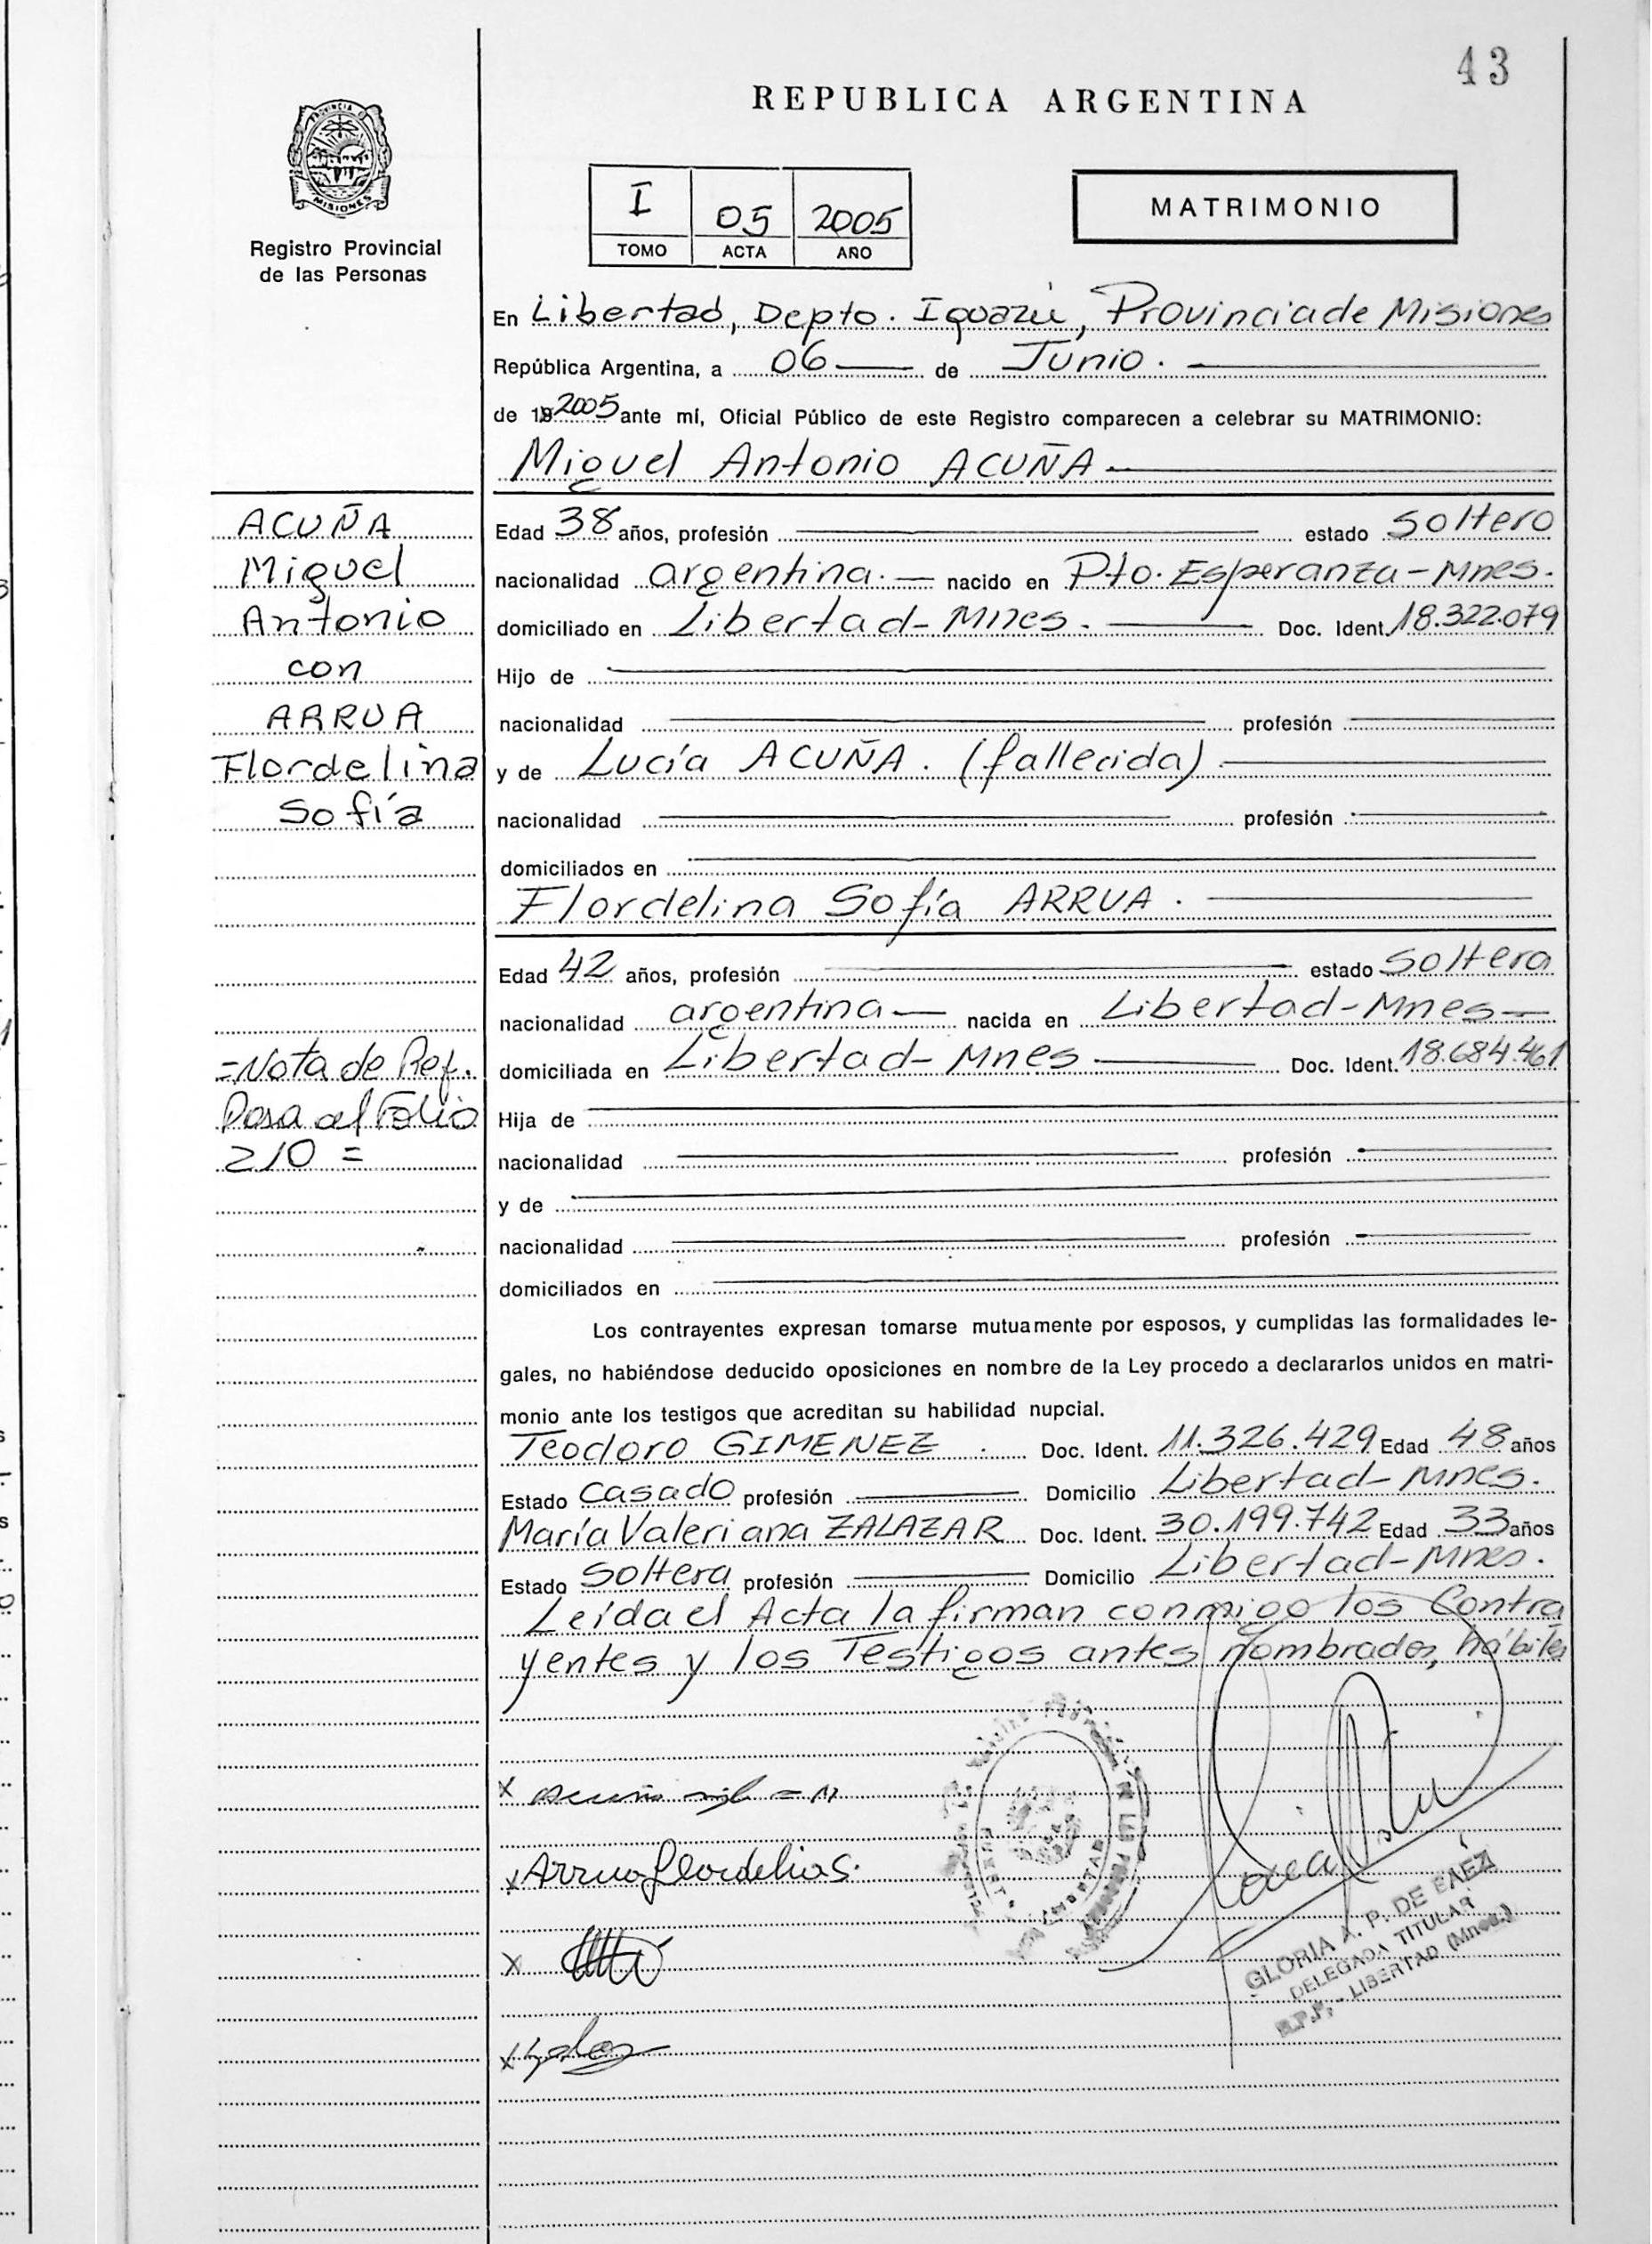 43
REPUBLICA ARGENTINA
PROVINCIA DE
MISIONES
Registro Provincial
de las Personas
I 05 2005
TOMO ACTA AÑO
MATRIMONIO
En Libertad, Depto. Iguazú, Provincia de Misiones
República Argentina, a 06 de Junio.
de 19 2005 ante mí, Oficial Público de este Registro comparecen a celebrar su MATRIMONIO:
Miguel Antonio ACUÑA
ACUÑA
Miguel
Antonio
con
ARRUA
Flordelina
Sofía
=Nota de Ref.
Pasa al Folio
210 =
Edad 38 años, profesión estado Soltero
nacionalidad argentina. nacido en Pto. Esperanza - Mnes.
domiciliado en Libertad - Mnes. Doc. Ident. 18.322.079
Hijo de
nacionalidad profesión
y de Lucía ACUÑA. (fallecida)
nacionalidad profesión
domiciliados en
Flordelina Sofía ARRUA.
Edad 42 años, profesión estado Soltera
nacionalidad argentina nacida en Libertad - Mnes
domiciliada en Libertad - Mnes Doc. Ident. 18.684.461
Hija de
nacionalidad profesión
y de
nacionalidad profesión
domiciliados en
Los contrayentes expresan tomarse mutuamente por esposos, y cumplidas las formalidades le-
gales, no habiéndose deducido oposiciones en nombre de la Ley procedo a declararlos unidos en matri-
monio ante los testigos que acreditan su habilidad nupcial.
Teodoro GIMENEZ Doc. Ident. 11.326.429 Edad 48 años
Estado Casado profesión Domicilio Libertad - Mnes.
María Valeriana ZALAZAR Doc. Ident. 30.199.742 Edad 33 años
Estado Soltera profesión Domicilio Libertad - Mnes.
Leída el Acta la firman conmigo los Contra
yentes y los Testigos antes nombrados, hábiles
X
X Arrua Flordelina S.
X
X
GLORIA A. P. DE BAEZ
DELEGADA TITULAR
R.P.P. - LIBERTAD (Mnes.)